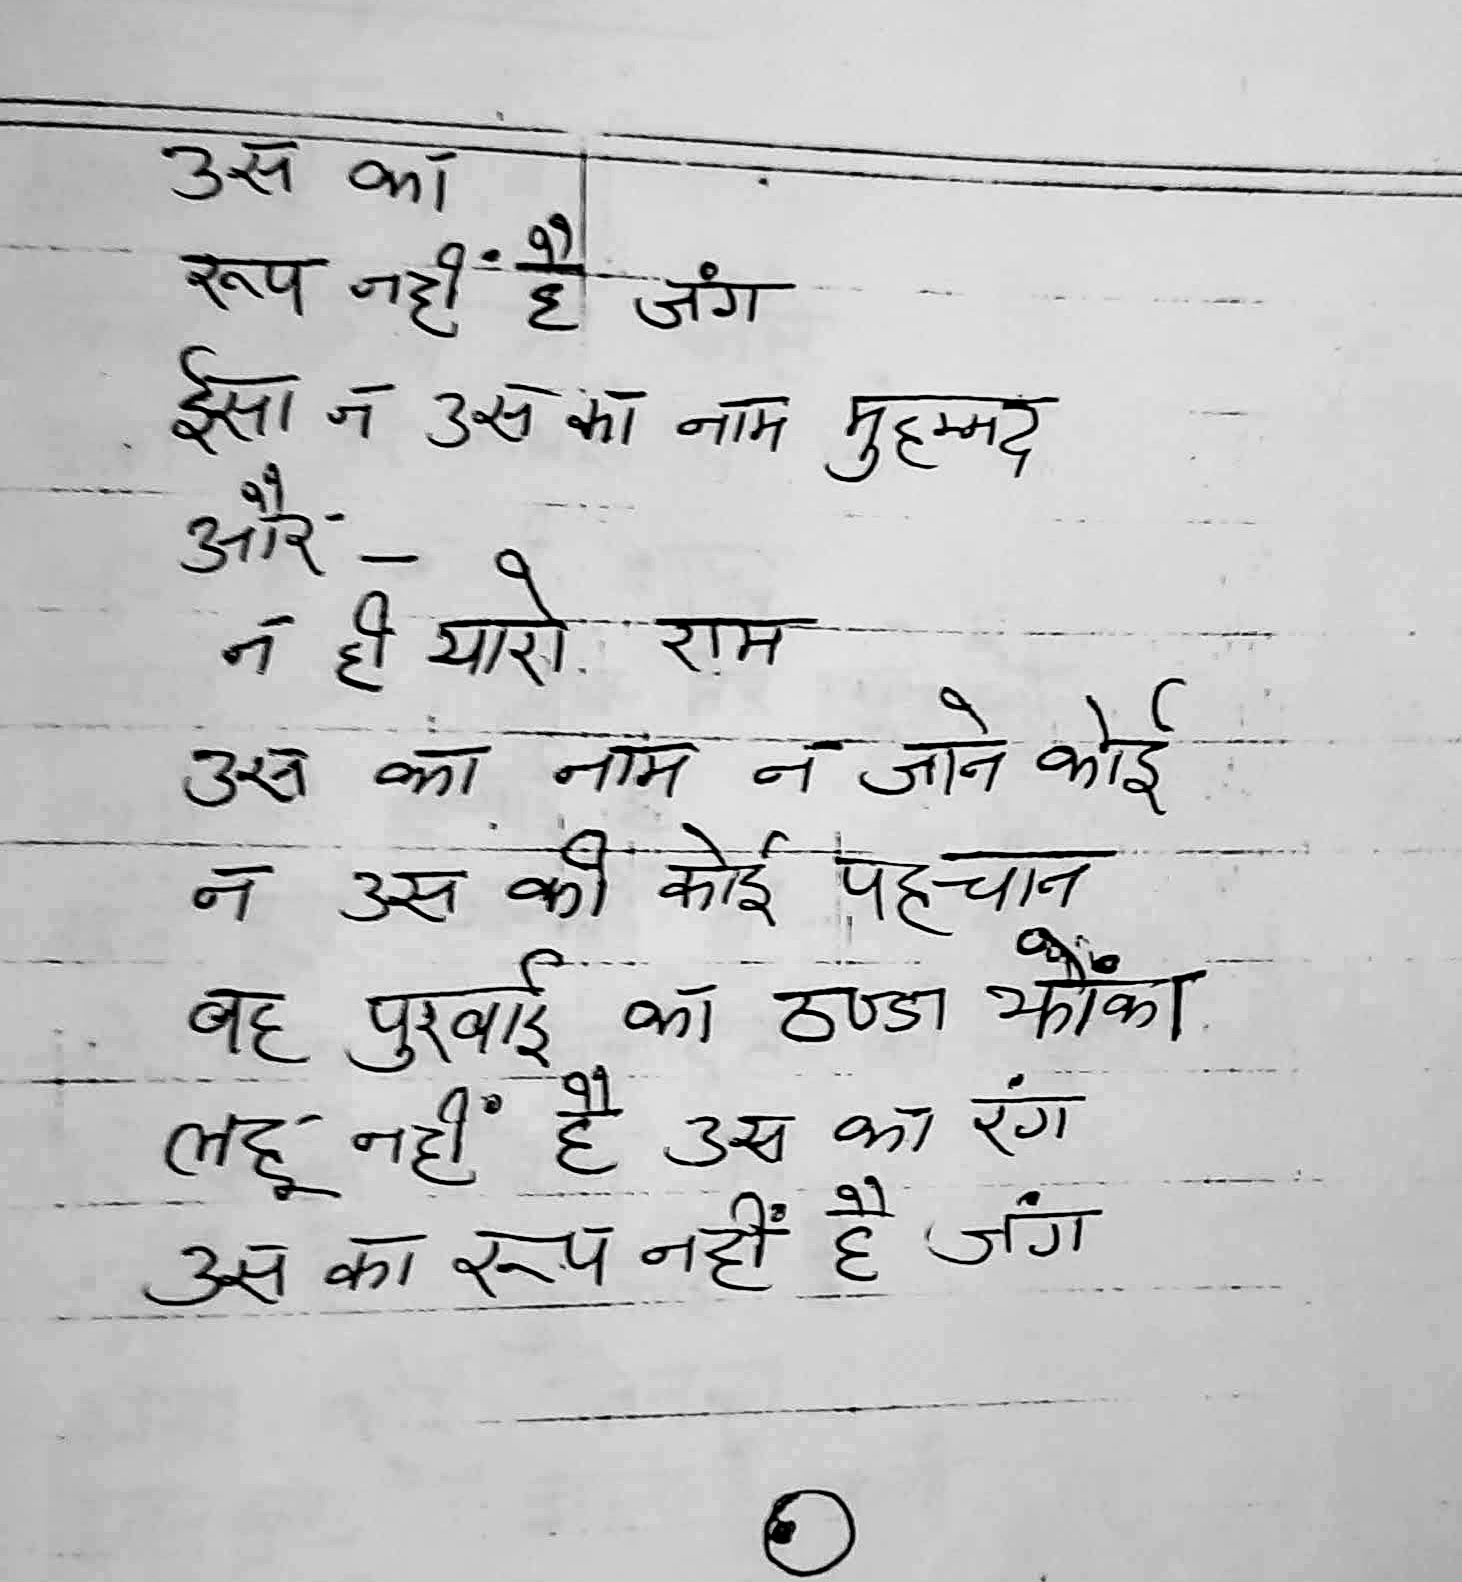 उस का
रूप नहीं है जंग
ईसा न उस का नाम मुहम्मद
और –
न ही यारो राम
उस का नाम न जाने कोई
न उस की कोई पहचान
वह पुरवाई का ठण्डा झोंका
लहू नहीं है उस का रंग
उस का रूप नहीं है जंग